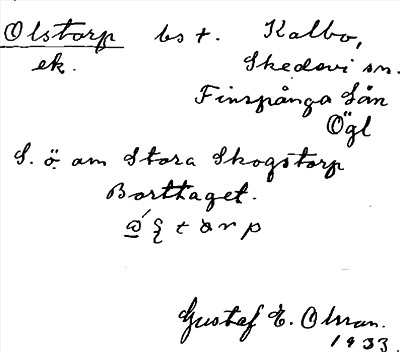 Olstorp bst. Kalbo,
ek. Skedevi sn.
Finspånga län
Ögl
S. ö. om Stora Skogstorp
Borttaget.
Gustaf E. Olsson.
1933.